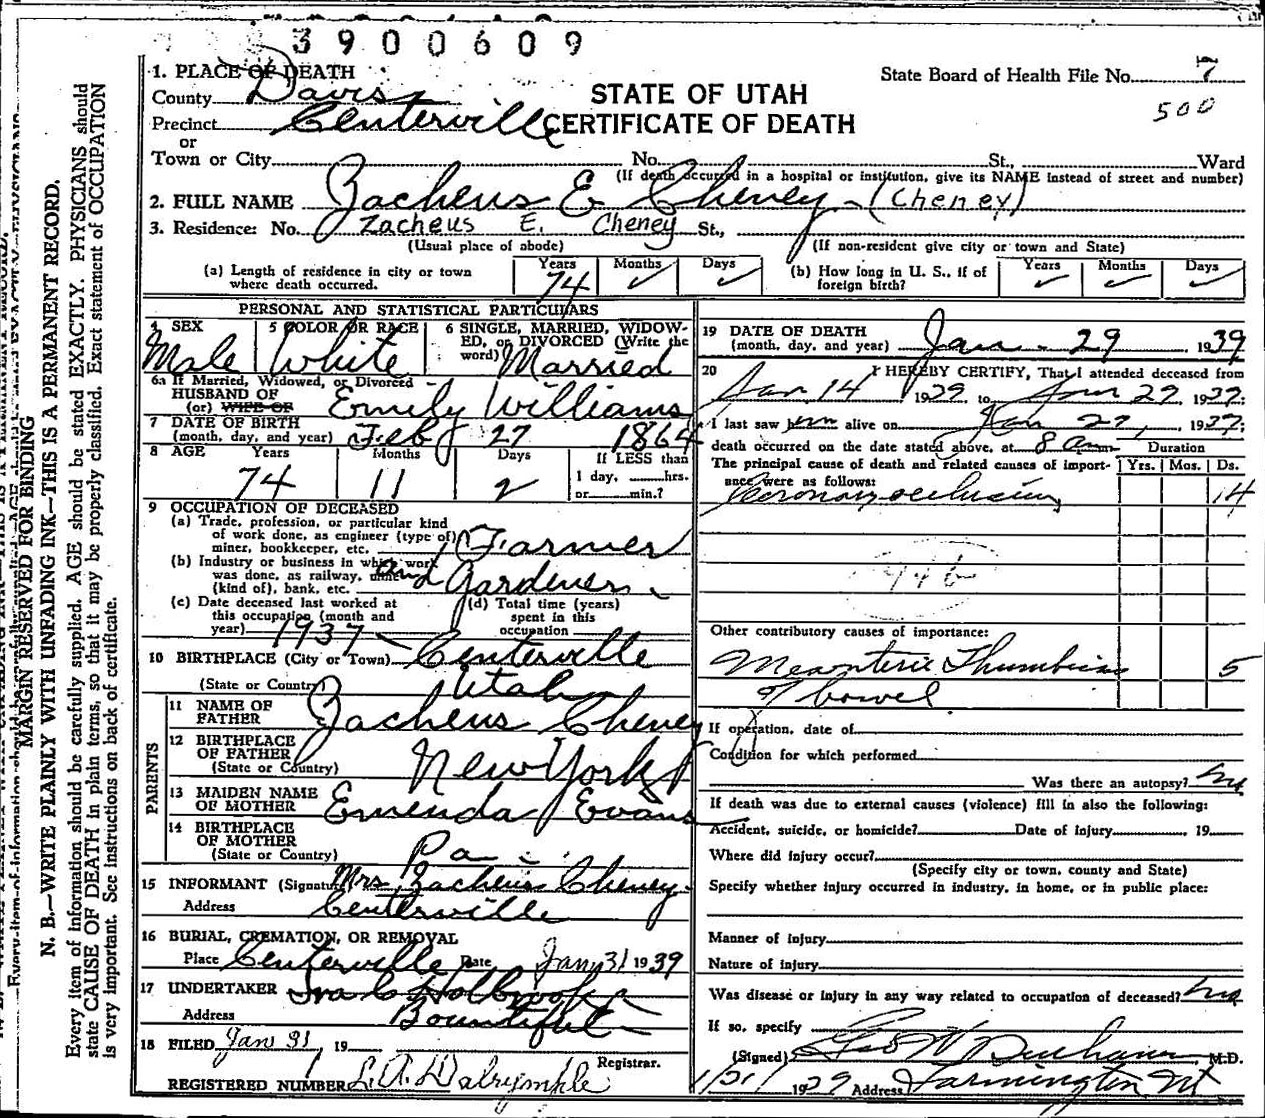 3900609
1. PLACE OF DEATH
State Board of Health File No. 7
County Davis
STATE OF UTAH
500
Precinct Centerville
CERTIFICATE OF DEATH
or
Town or City No. St., Ward
(If death occurred in a hospital or institution, give its NAME instead of street and number)
2. FULL NAME Zacheus E Cheney - (Cheney)
3. Residence: No. Zacheus E. Cheney St.,
(Usual place of abode) (If non-resident give city or town and State)
(a) Length of residence in city or town where death occurred. Years 74 Months ✓ Days ✓
(b) How long in U. S., if of foreign birth? Years ✓ Months ✓ Days ✓
PERSONAL AND STATISTICAL PARTICULARS
4 SEX Male
5 COLOR OR RACE White
6 SINGLE, MARRIED, WIDOWED, or DIVORCED (Write the word) Married
6a If Married, Widowed, or Divorced
HUSBAND OF
(or) WIFE OF Emily Williams
7 DATE OF BIRTH
(month, day, and year) Feb 27 1864
8 AGE Years 74 Months 11 Days 2
If LESS than
1 day, hrs.
or min.?
9 OCCUPATION OF DECEASED
(a) Trade, profession, or particular kind
of work done, as engineer (type of)
miner, bookkeeper, etc. Farmer
(b) Industry or business in which work
was done, as railway, mine
(kind of), bank, etc. and Gardener
(c) Date deceased last worked at
this occupation (month and
year) 1937
(d) Total time (years)
spent in this
occupation
10 BIRTHPLACE (City or Town) Centerville
(State or Country) Utah
PARENTS
11 NAME OF
FATHER Zacheus Cheney
12 BIRTHPLACE
OF FATHER
(State or Country) New York
13 MAIDEN NAME
OF MOTHER Emenda Evans
14 BIRTHPLACE
OF MOTHER
(State or Country) Pa
15 INFORMANT (Signature) Mrs. Zacheus Cheney
Address Centerville
16 BURIAL, CREMATION, OR REMOVAL
Place Centerville Date Jan 31 1939
17 UNDERTAKER Ira C Holbrook
Address Bountiful
18 FILED Jan 31, 19
Registrar.
REGISTERED NUMBER L. A. Dalrymple
19 DATE OF DEATH
(month, day, and year) Jan - 29 1939
20 I HEREBY CERTIFY, That I attended deceased from
Jan 14 1939 to Jan 29 1939:
I last saw him alive on Jan 29, 1939:
death occurred on the date stated above, at 8 am
Duration
The principal cause of death and related causes of importance were as follows:
Yrs. Mos. Ds.
Coronary occlusion 14
94b
Other contributory causes of importance:
Mesenteric Thumbosis 5
of bowel
If operation, date of
Condition for which performed
Was there an autopsy? no
If death was due to external causes (violence) fill in also the following:
Accident, suicide, or homicide? Date of injury 19
Where did injury occur?
(Specify city or town, county and State)
Specify whether injury occurred in industry, in home, or in public place:
Manner of injury
Nature of injury
Was disease or injury in any way related to occupation of deceased? no
If so, specify
(Signed) Geo W Buchanan M.D.
1/31/1939 Address Farmington Ut
MARGIN RESERVED FOR BINDING
N. B.—WRITE PLAINLY WITH UNFADING INK—THIS IS A PERMANENT RECORD.
Every item of information should be carefully supplied. AGE should be stated EXACTLY. PHYSICIANS should
state CAUSE OF DEATH in plain terms, so that it may be properly classified. Exact statement of OCCUPATION
is very important. See instructions on back of certificate.